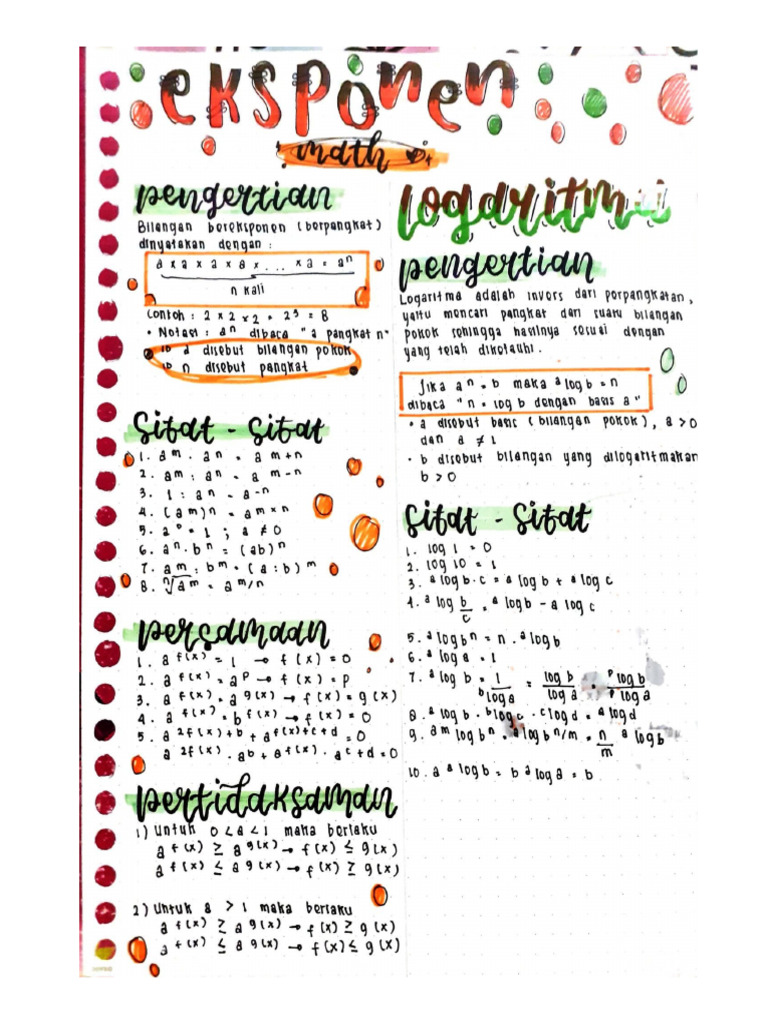 eksponen
math
pengertian
Bilangan bereksponen (berpangkat)
dinyatakan dengan :
a x a x a x a x ... x a = aⁿ
n kali
Contoh : 2 x 2 x 2 = 2³ = 8
• Notasi : aⁿ dibaca " a pangkat n"
a disebut bilangan pokok
n disebut pangkat
Sifat - Sifat
1. aᵐ . aⁿ = aᵐ⁺ⁿ
2. aᵐ : aⁿ = aᵐ⁻ⁿ
3. 1 : aⁿ = a⁻ⁿ
4. (aᵐ)ⁿ = aᵐˣⁿ
5. a⁰ = 1 ; a ≠ 0
6. aⁿ . bⁿ = (ab)ⁿ
7. aᵐ : bᵐ = (a : b)ᵐ
8. ⁿ√aᵐ = a^m/n
persamaan
1. a^f(x) = 1 → f(x) = 0
2. a^f(x) = a^p → f(x) = p
3. a^f(x) = a^g(x) → f(x) = g(x)
4. a^f(x) = b^f(x) → f(x) = 0
5. a^2f(x)+b + a^f(x)+c+d = 0
a^2f(x) . a^b + a^f(x) . a^c+d = 0
pertidaksamaan
1) Untuk 0 < a < 1 maka berlaku
a^f(x) ≥ a^g(x) → f(x) ≤ g(x)
a^f(x) ≤ a^g(x) → f(x) ≥ g(x)
2) Untuk a > 1 maka berlaku
a^f(x) ≥ a^g(x) → f(x) ≥ g(x)
a^f(x) ≤ a^g(x) → f(x) ≤ g(x)
logaritma
pengertian
Logaritma adalah invers dari perpangkatan,
yaitu mencari pangkat dari suatu bilangan
pokok sehingga hasilnya sesuai dengan
yang telah diketahui.
Jika aⁿ = b maka ᵃlog b = n
dibaca " n = log b dengan basis a "
• a disebut basis (bilangan pokok), a > 0
dan a ≠ 1
• b disebut bilangan yang dilogaritmakan
b > 0
Sifat - Sifat
1. log 1 = 0
2. log 10 = 1
3. ᵃlog b.c = ᵃlog b + ᵃlog c
4. ᵃlog b/c = ᵃlog b - ᵃlog c
5. ᵃlog bⁿ = n . ᵃlog b
6. ᵃlog a = 1
7. ᵃlog b = 1/ᵇlog a = log b/log a = ᵖlog b/ᵖlog a
8. ᵃlog b . ᵇlog c . ᶜlog d = ᵃlog d
9. a^m log bⁿ = ᵃlog b^n/m = n/m ᵃlog b
10. a ᵃlog b = b ᵃlog a = b